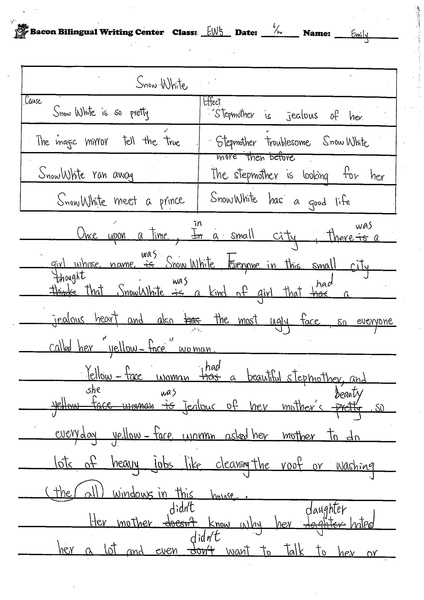 Bacon Bilingual Writing Center Class: EW5 Date: Name: Emily
Snow White
Cause Effect
Snow White is so pretty Stepmother is jealous of her
The magic mirror tell the true Stepmother troublesome Snow White
more then before
Snow White ran away The stepmother is looking for her
Snow White meet a prince Snow White has a good life
in was
Once upon a time, In a small city, there is a
was
girl whose name is Snow White Everyone in this small city
thought was had
thinks that Snow White is a kind of girl that has a
jealous heart and also has the most ugly face, so everyone
called her "yellow-face" woman.
had
Yellow-face woman has a beautiful stepmother, and
she was beauty
yellow-face woman is jealous of her mother's pretty so
everyday yellow-face woman asked her mother to do
lots of heavy jobs like cleaning the roof or washing
the all windows in this house.
didn't daughter
Her mother doesn't know why her daghter hated
didn't
her a lot and even don't want to talk to her or